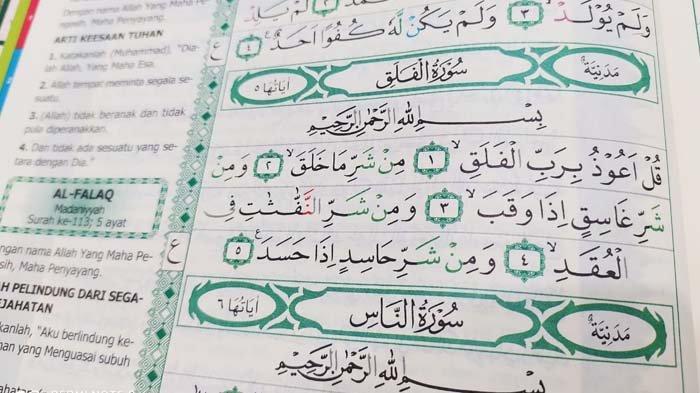 وَلَمْ يُوْلَدْۙ ٣ وَلَمْ يَكُنْ لَّهٗ كُفُوًا اَحَدٌ ࣖ ٤
مَدَنِيَّةٌ
سُوْرَةُ الْفَلَقِ
اٰيَاتُهَا ٥
بِسْمِ اللّٰهِ الرَّحْمٰنِ الرَّحِيْمِ
قُلْ اَعُوْذُ بِرَبِّ الْفَلَقِۙ ١ مِنْ شَرِّ مَا خَلَقَۙ ٢ وَمِنْ
شَرِّ غَاسِقٍ اِذَا وَقَبَۙ ٣ وَمِنْ شَرِّ النَّفّٰثٰتِ فِى
الْعُقَدِۙ ٤ وَمِنْ شَرِّ حَاسِدٍ اِذَا حَسَدَ ࣖ ٥
مَدَنِيَّةٌ
سُوْرَةُ النَّاسِ
اٰيَاتُهَا ٦
بِسْمِ اللّٰهِ الرَّحْمٰنِ الرَّحِيْمِ
ع
ع
nama Allah Yang Maha Pe-
Maha Penyayang.
ARTI KEESAAN TUHAN
1. Katakanlah (Muhammad), "Dia-
lah Allah, Yang Maha Esa.
2. Allah tempat meminta segala se-
suatu.
3. (Allah) tidak beranak dan tidak
pula diperanakkan.
4. Dan tidak ada sesuatu yang se-
tara dengan Dia."
AL-FALAQ
Madaniyyah
Surah ke-113; 5 ayat
engan nama Allah Yang Maha Pe-
sih, Maha Penyayang.
AH PELINDUNG DARI SEGA-
EJAHATAN
kanlah, "Aku berlindung ke-
han yang Menguasai subuh